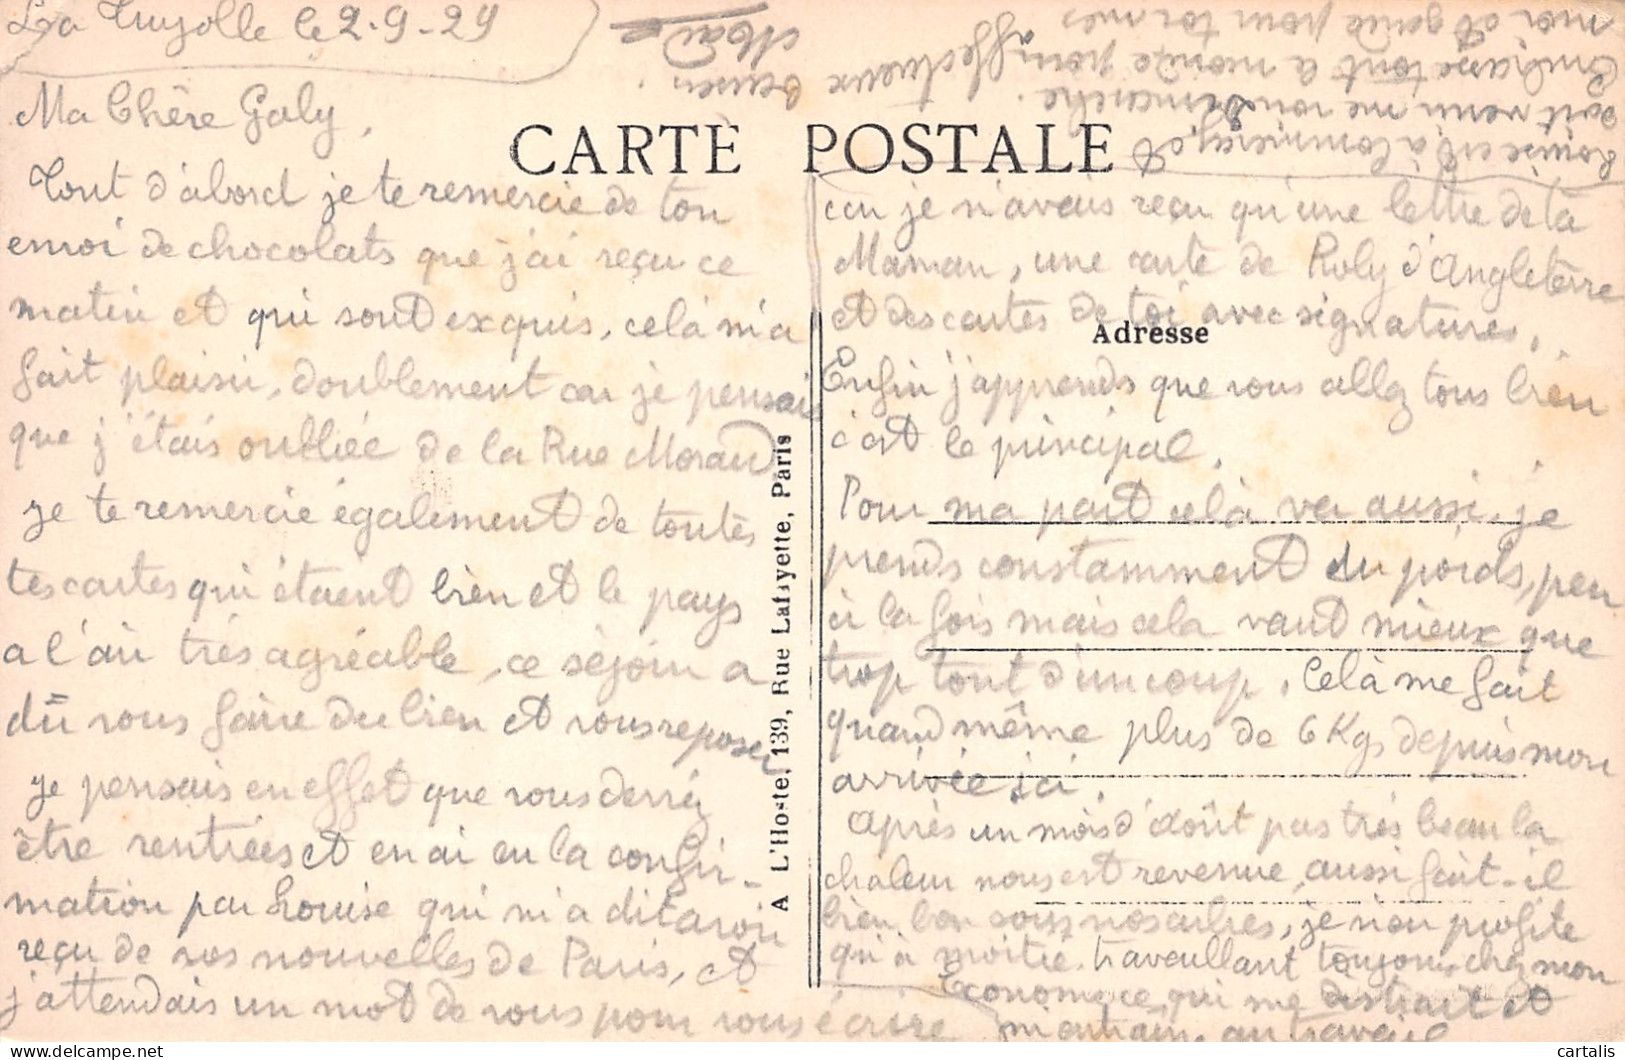 La Tuyolle le 2-9-29
Ma Chère Galy,
CARTE POSTALE
Tout d'abord je te remercie de ton
envoi de chocolats que j'ai reçu ce
matin et qui sont exquis, celà m'a
fait plaisir, doublement car je pensais
que j'étais oubliée de la Rue Morand
je te remercie également de toutes
tes cartes qui étaient bien et le pays
a l'air très agréable, ce séjour a
dû vous faire du bien et vous reposer
je pensais en effet que vous deviez
être rentrées et en ai eu la confir-
mation par Louise qui m'a dit avoir
reçu de vos nouvelles de Paris, et
j'attendais un mot de vous pour vous écrire
A L'Hoste, 139, Rue Lafayette, Paris
car je n'avais reçu qu'une lettre de ta
Maman, une carte de Roly d'Angleterre
et des cartes de toi avec signatures.
Adresse
Enfin j'apprends que vous allez tous bien
c'est le principal.
Pour ma part celà va aussi, je
prends constamment du poids, peu
à la fois mais cela vaut mieux que
trop tout d'un coup. Celà me fait
quand même plus de 6 Kgs depuis mon
arrivée ici.
Après un mois d'août pas très beau la
chaleur nous est revenue, aussi fait-il
bien bon sous nos arbres, je n'en profite
qu'à moitié, travaillant toujours chez mon
Econome ce qui me distrait et
m'entraîne au travail
Louise est à Commercy et
doit venir me voir Dimanche.
Embrasse tout le monde pour
moi et garde pour toi mes
affectueux
baisers.
Mad
cartalis